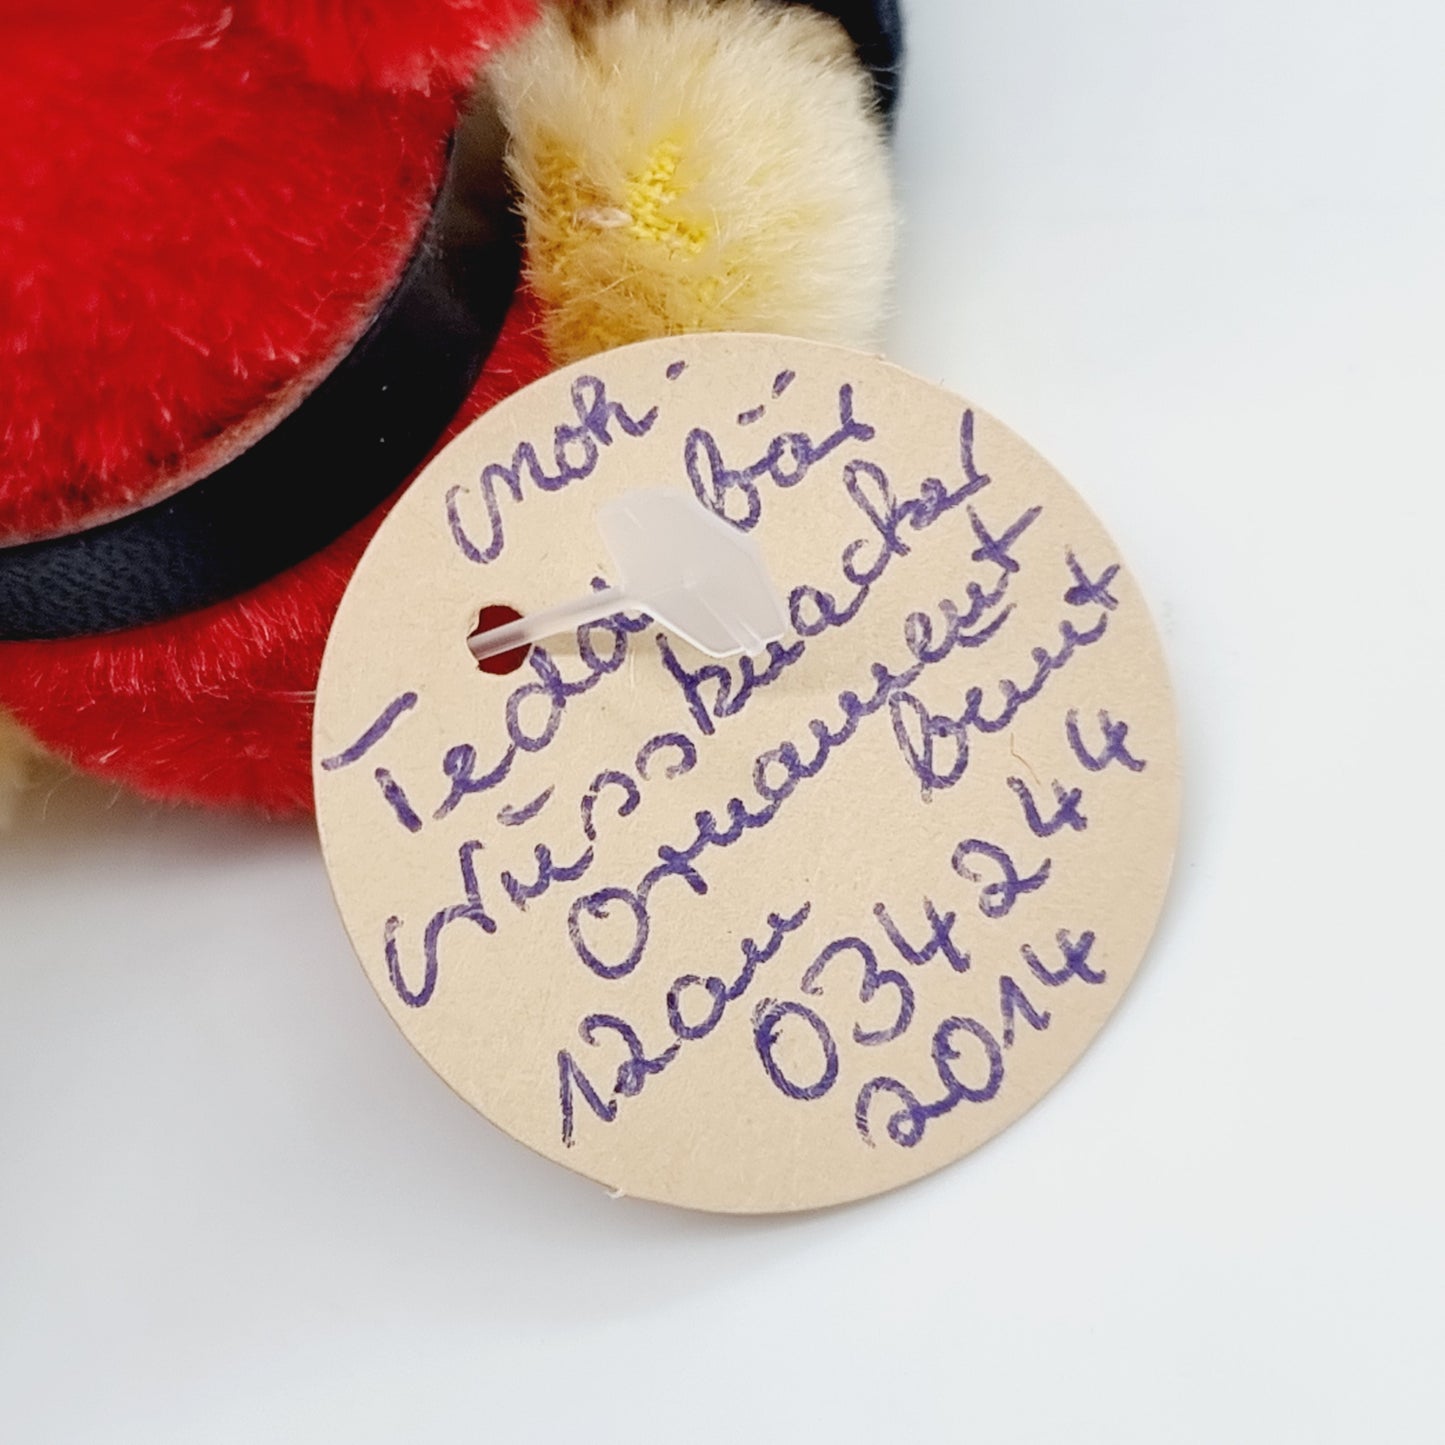 Moh.
Teddy Bär
Nussknacker
Ornament
12cm bunt
034244
2014